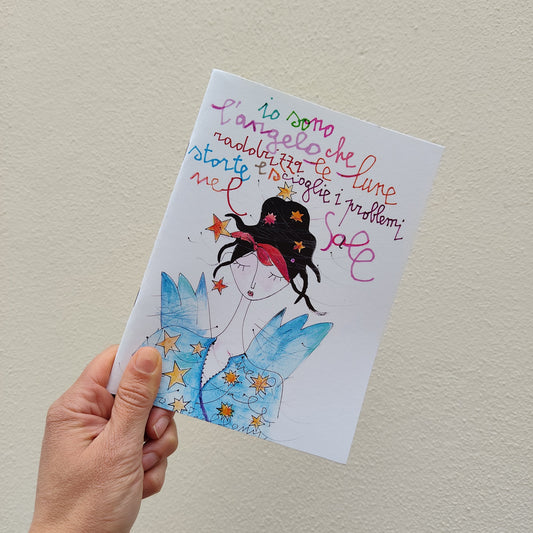 io sono
l'angelo che
raddrizza le lune
storte e scioglie i problemi
nel sole